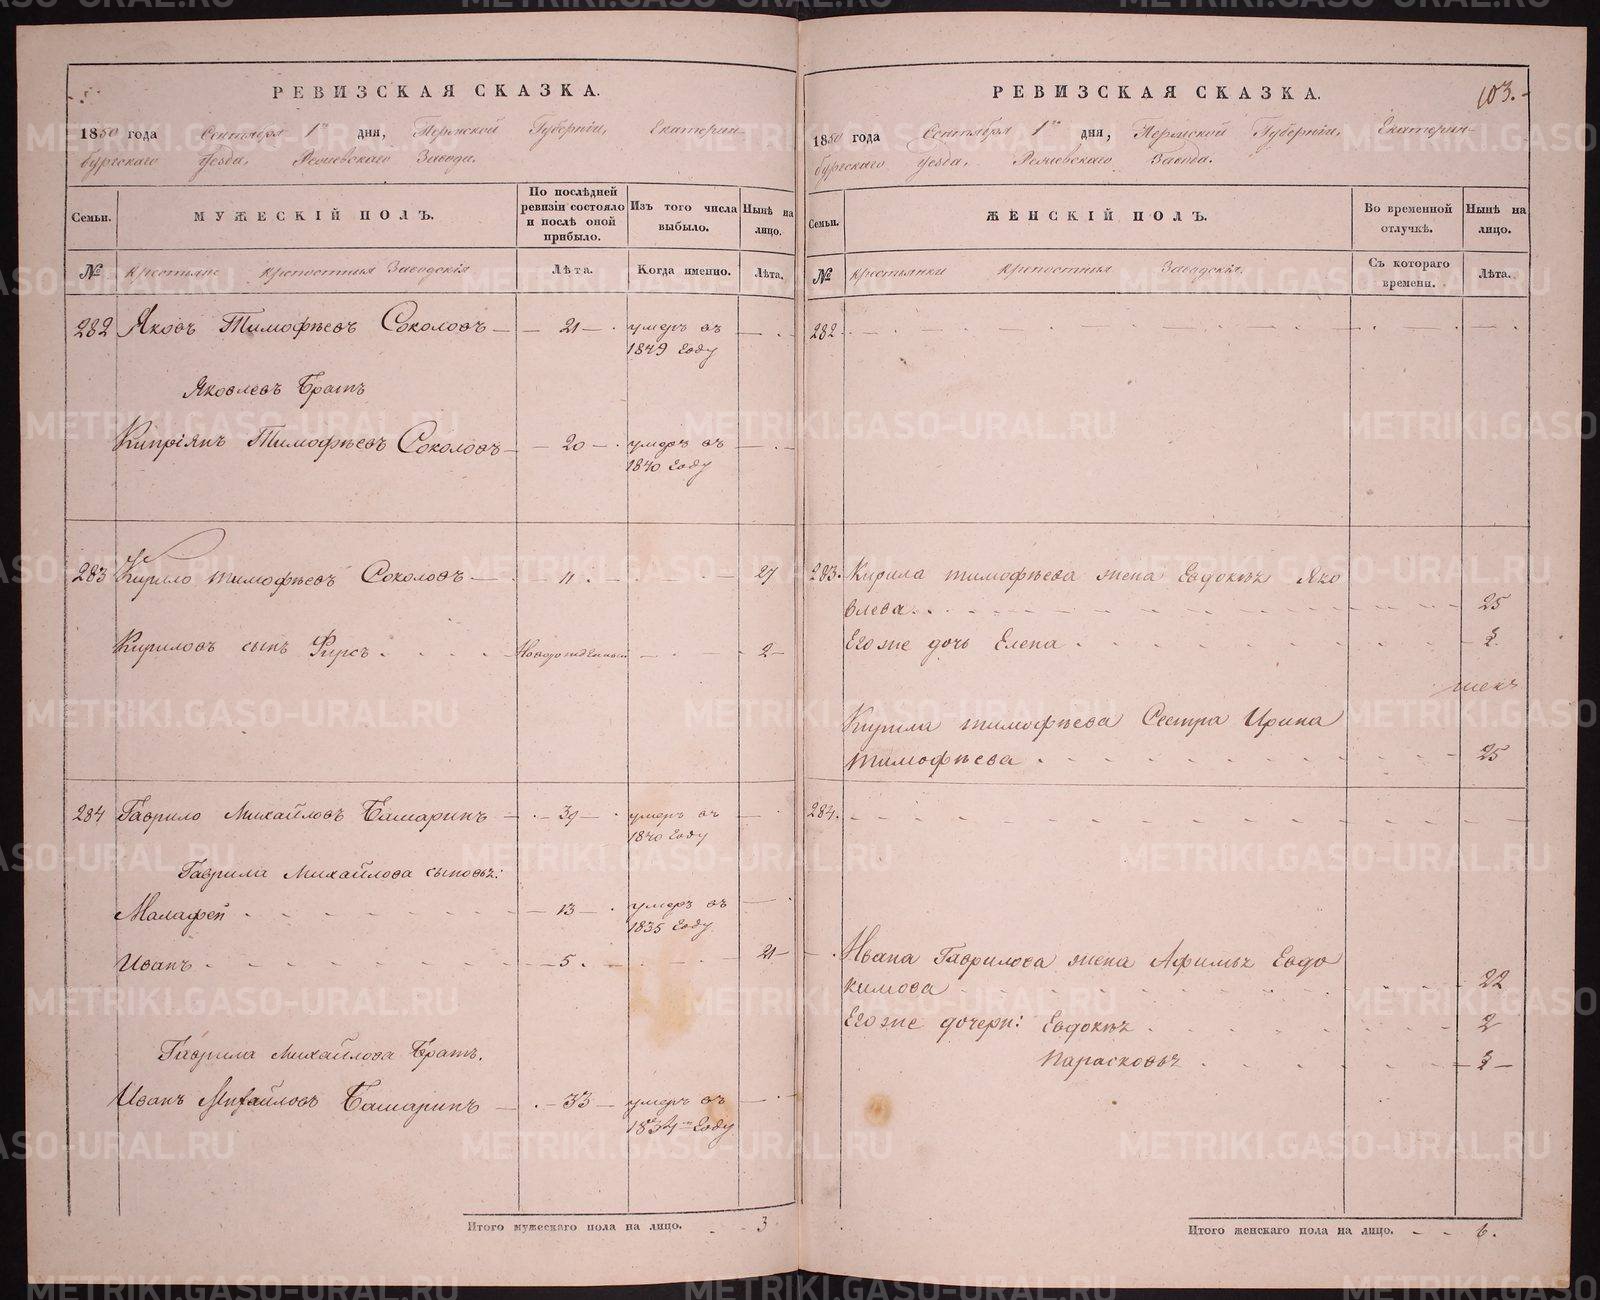 РЕВИЗСКАЯ СКАЗКА.
1850 года Сентября 1го дня, Пермской Губернiи, Екатерин-
бургскаго Уезда, Режевскаго Завода.
Семьи.
МУЖЕСКIЙ ПОЛЪ.
По послѣдней ревизiи состояло и послѣ оной прибыло.
Изъ того числа выбыло.
Нынѣ на лицо.
№
крестьяне крепостныя Заводскiя
Лѣта.
Когда именно.
Лѣта.
282 Яковъ Тимофѣевъ Соколовъ — 21 — умеръ въ
1849 Году
Яковлевъ Братъ
Кипрiянъ Тимофѣевъ Соколовъ — 20 — умеръ въ
1840 Году
283 Кирило тимофѣевъ Соколовъ — 11 . 27
Кириловъ сынъ Фирсъ . Новорожденный — 2
284 Гаврило Михайловъ Башаринъ — 39 — умеръ въ
1840 Году
Гаврила Михайлова сыновья:
Малафей — 13 — умеръ въ
1835 Году
Иванъ — 5 . 21 —
Гаврила Михайлова Братъ.
Иванъ Михайловъ Башаринъ — 33 — умеръ въ
1834 Году
Итого мужескаго пола на лицо. 3
РЕВИЗСКАЯ СКАЗКА.
103.
1850 года Сентября 1го дня, Пермской Губернiи, Екатерин-
бургскаго Уезда, Режевскаго Завода.
Семьи.
ЖЕНСКIЙ ПОЛЪ.
Во временной отлучкѣ.
Нынѣ на лицо.
№
крестьянки крепостныя Заводскiя,
Съ котораго времени.
Лѣта.
282
283. Кирила тимофѣева жена Евдокѣя Яко
влева . 25
Его же дочь Елена . 3
Кирила тимофѣева Сестра Ирина
тимофѣева . 25
284.
Ивана Гаврилова жена Афимья Евдо
кимова 22
Его же дочери: Евдокѣя . 2
Парасковья . 3 —
Итого женскаго пола на лицо. 6.
METRIKI.GASO-URAL.RU